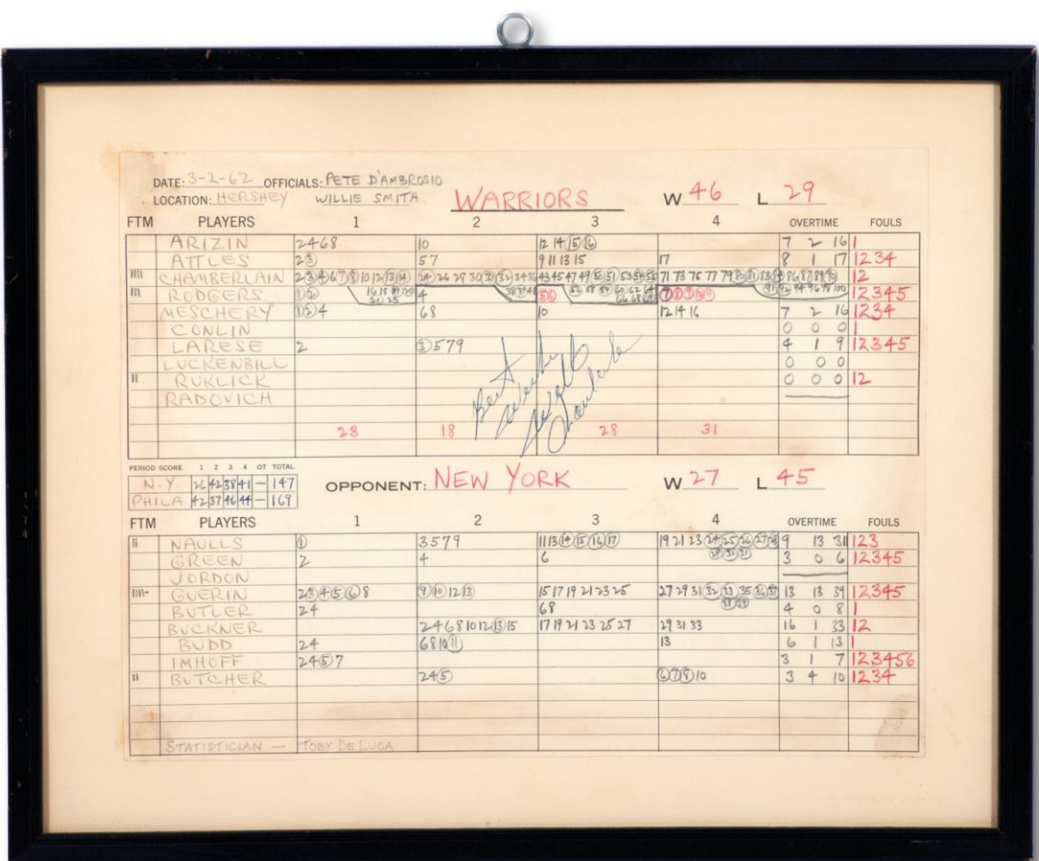 DATE: 3-2-62 OFFICIALS: PETE D'AMBROSIO
LOCATION: HERSHEY WILLIE SMITH WARRIORS W 46 L 29
FTM PLAYERS 1 2 3 4 OVERTIME FOULS
ARIZIN 2468 10 12 14 15 16 7 2 16 1
ATTLES 23 57 9 11 13 15 17 8 1 17 1234
CHAMBERLAIN 12
RODGERS 12 4 12345
MESCHERY 124 68 10 12 14 16 7 2 16 1234
CONLIN 0 0 0 1
LARESE 2 3579 4 1 9 12345
LUCKENBILL 0 0 0
RUKLICK 0 0 0 12
RADOVICH
Best Wishes
Wilt Chamberlain
28 18 28 31
PERIOD SCORE 1 2 3 4 OT TOTAL
N.Y 26 42 38 41 — 147
PHILA 42 37 46 44 — 169
OPPONENT: NEW YORK W 27 L 45
FTM PLAYERS 1 2 3 4 OVERTIME FOULS
NAULLS 1 3579 11 13 14 15 16 17 19 21 23 24 25 26 27 28 9 13 31 123
GREEN 2 4 6 3 0 6 12345
JORDON
GUERIN 234568 9 10 12 13 15 17 19 21 23 25 27 29 31 32 33 35 36 37 13 13 39 12345
38 39
BUTLER 24 68 4 0 8 1
BUCKNER 2 4 6 8 10 12 13 15 17 19 21 23 25 27 29 31 33 16 1 33 12
BUDD 24 68 10 11 13 6 1 13 1
IMHOFF 2457 3 1 7 123456
BUTCHER 245 6 7 8 10 3 4 10 1234
STATISTICIAN — TOBY DE LUCA